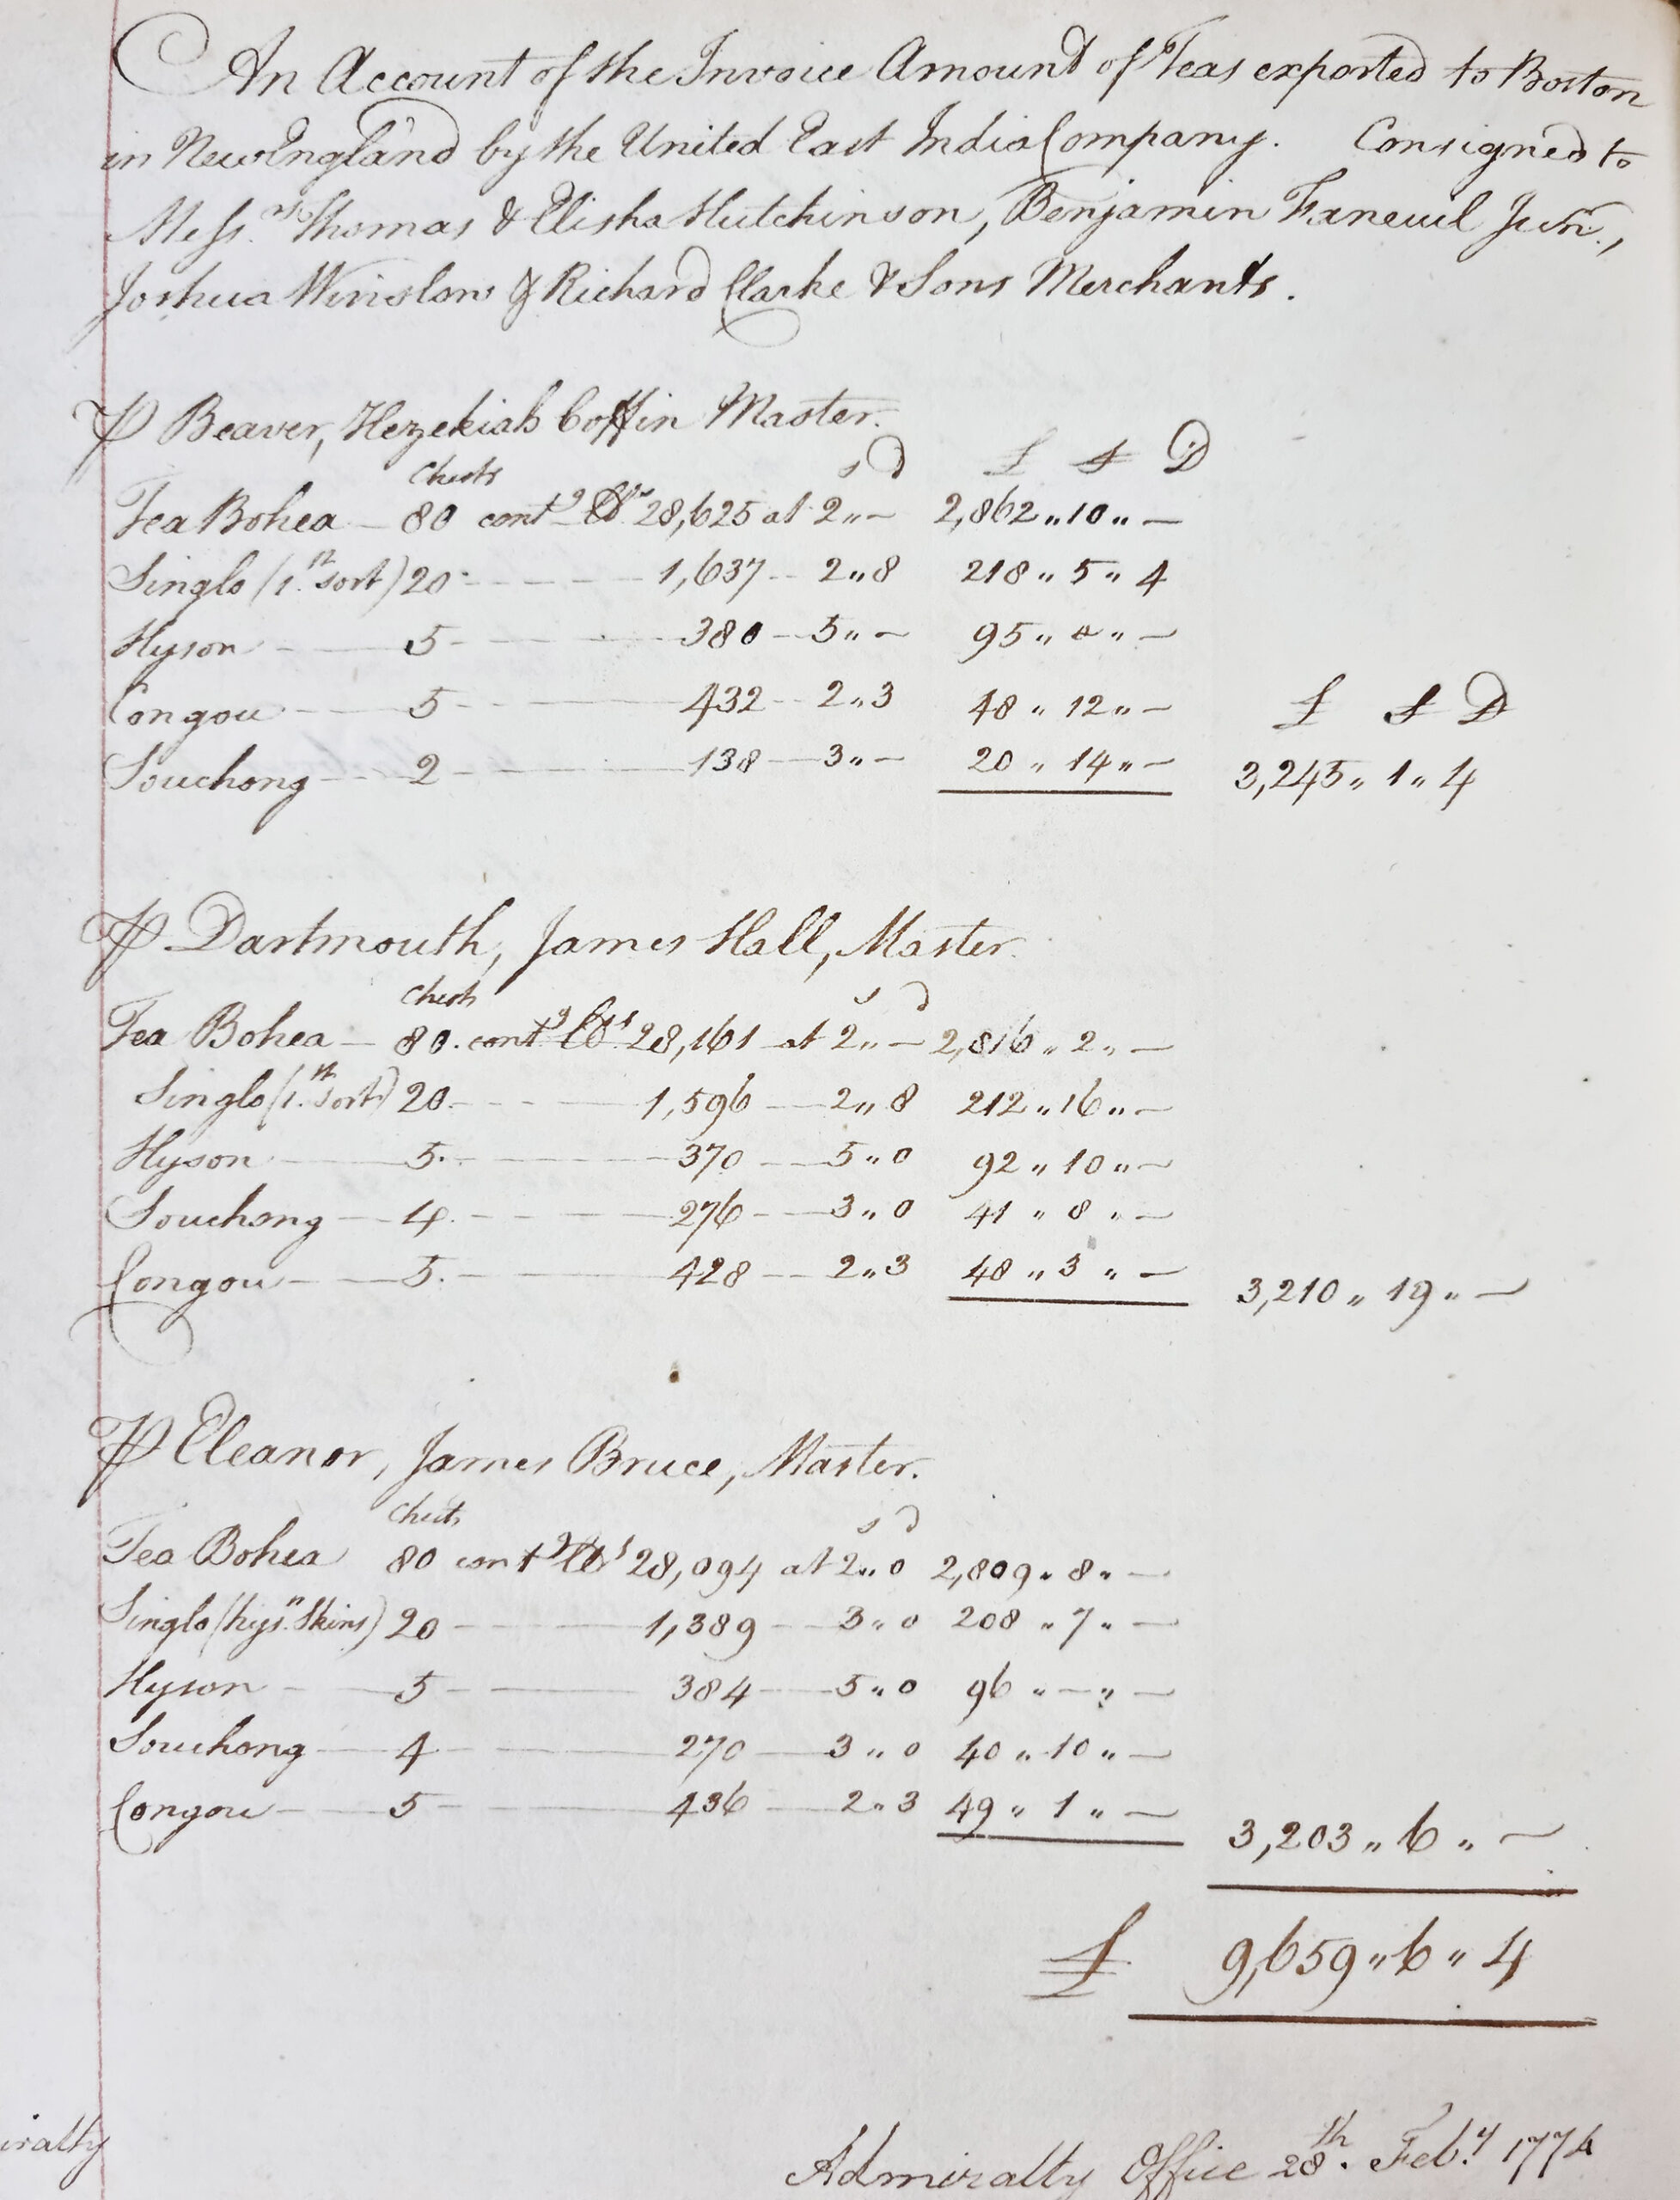 An Account of the Invoice Amount of Teas exported to Boston
in New England by the United East India Company. Consigned to
Mess.rs Thomas & Elisha Hutchinson, Benjamin Faneuil Junr.,
Joshua Winslow & Richard Clarke & Sons Merchants.
⅌ Beaver, Hezekiah Coffin Master.
Chests s d £ S D
Tea Bohea — 80 contg lbs 28,625 at 2„— 2,862„10„—
Singlo (1.st sort) 20 — 1,637 — 2„8 218„5„4
Hyson — 5 — 380 — 5„— 95„0„—
Congou — 5 — 432 — 2„3 48„12„— £ S D
Souchong — 2 — 138 — 3„— 20„14„— 3,245„1„4
⅌ Dartmouth, James Hall, Master.
Chests s d
Tea Bohea — 80. contg lbs 28,161 at 2„— 2,816„2„—
Singlo (1.st sort) 20. — 1,596 — 2„8 212„16„—
Hyson — 5. — 370 — 5„0 92„10„—
Souchong — 4. — 276 — 3„0 41„8„—
Congou — 5. — 428 — 2„3 48„3„— 3,210„19„—
⅌ Eleanor, James Bruce, Master.
Chests s d
Tea Bohea 80 contg lbs 28,094 at 2„0 2,809„8„—
Singlo (hys.n Skins) 20 — 1,389 — 3„0 208„7„—
Hyson — 5 — 384 — 5„0 96„—„—
Souchong — 4 — 270 — 3„0 40„10„—
Congou — 5 — 436 — 2„3 49„1„— 3,203„6„—
£ 9,659„6„4
iralty
Admiralty Office 28th. Feb.y 1774